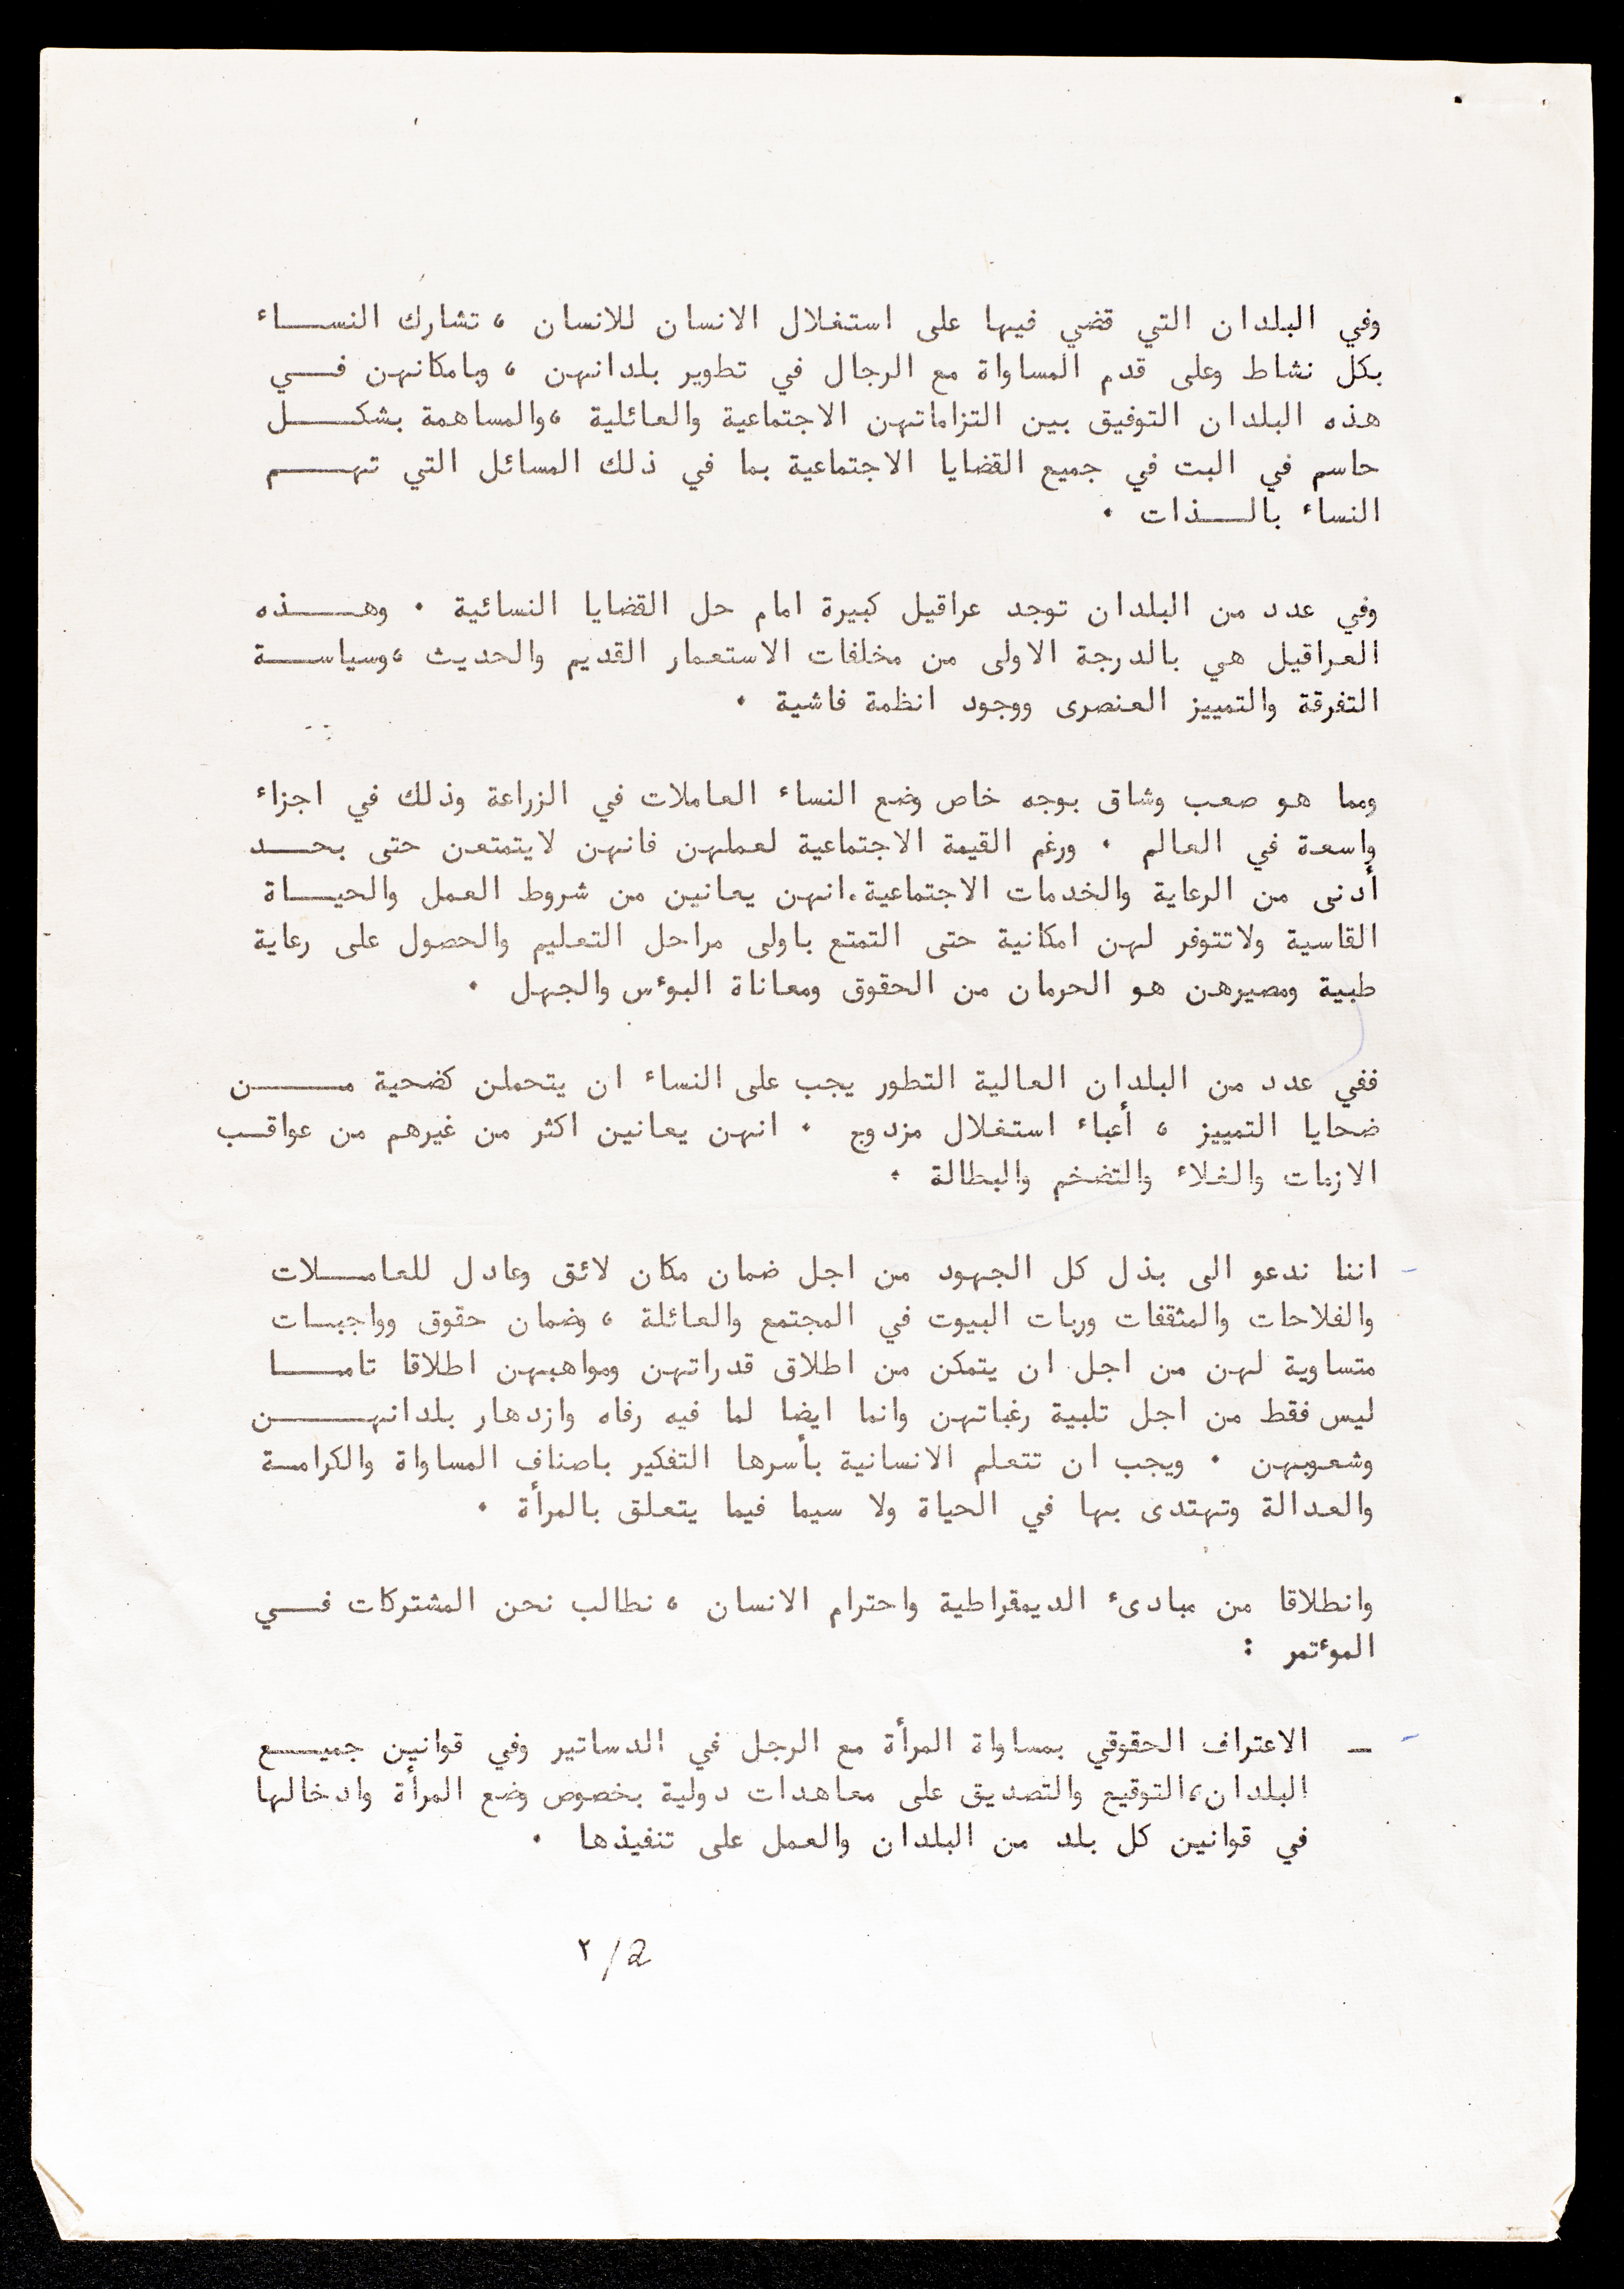 وفي البلدان التي قضي فيها على استغلال الانسان للانسان ، تشارك النساء
بكل نشاط وعلى قدم المساواة مع الرجال في تطوير بلدانهن ، وبامكانهن في
هذه البلدان التوفيق بين التزاماتهن الاجتماعية والعائلية ،والمساهمة بشكل
حاسم في البت في جميع القضايا الاجتماعية بما في ذلك المسائل التي تهم
النساء بالذات .
وفي عدد من البلدان توجد عراقيل كبيرة امام حل القضايا النسائية . وهذه
العراقيل هي بالدرجة الاولى من مخلفات الاستعمار القديم والحديث ،وسياسة
التفرقة والتمييز العنصرى ووجود انظمة فاشية .
ومما هو صعب وشاق بوجه خاص وضع النساء العاملات في الزراعة وذلك في اجزاء
واسعة في العالم . ورغم القيمة الاجتماعية لعملهن فانهن لايتمتعن حتى بحد
أدنى من الرعاية والخدمات الاجتماعية.انهن يعانين من شروط العمل والحياة
القاسية ولاتتوفر لهن امكانية حتى التمتع باولى مراحل التعليم والحصول على رعاية
طبية ومصيرهن هو الحرمان من الحقوق ومعاناة البوءس والجهل .
ففي عدد من البلدان العالية التطور يجب على النساء ان يتحملن كضحية من
ضحايا التمييز ، أعباء استغلال مزدوج . انهن يعانين اكثر من غيرهم من عواقب
الازمات والغلاء والتضخم والبطالة .
اننا ندعو الى بذل كل الجهود من اجل ضمان مكان لائق وعادل للعاملات
والفلاحات والمثقفات وربات البيوت في المجتمع والعائلة ، وضمان حقوق وواجبات
متساوية لهن من اجل ان يتمكن من اطلاق قدراتهن ومواهبهن اطلاقا تاما
ليس فقط من اجل تلبية رغباتهن وانما ايضا لما فيه رفاه وازدهار بلدانهن
وشعوبهن . ويجب ان تتعلم الانسانية بأسرها التفكير باصناف المساواة والكرامة
والعدالة وتهتدى بها في الحياة ولا سيما فيما يتعلق بالمرأة .
وانطلاقا من مبادىء الديمقراطية واحترام الانسان ، نطالب نحن المشتركات في
الموءتمر :
— الاعتراف الحقوقي بمساواة المرأة مع الرجل في الدساتير وفي قوانين جميع
البلدان،التوقيع والتصديق على معاهدات دولية بخصوص وضع المرأة وادخالها
في قوانين كل بلد من البلدان والعمل على تنفيذها .
٢/2